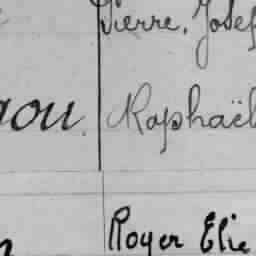 Pierre, Josef
Raphaël
Royer Elie